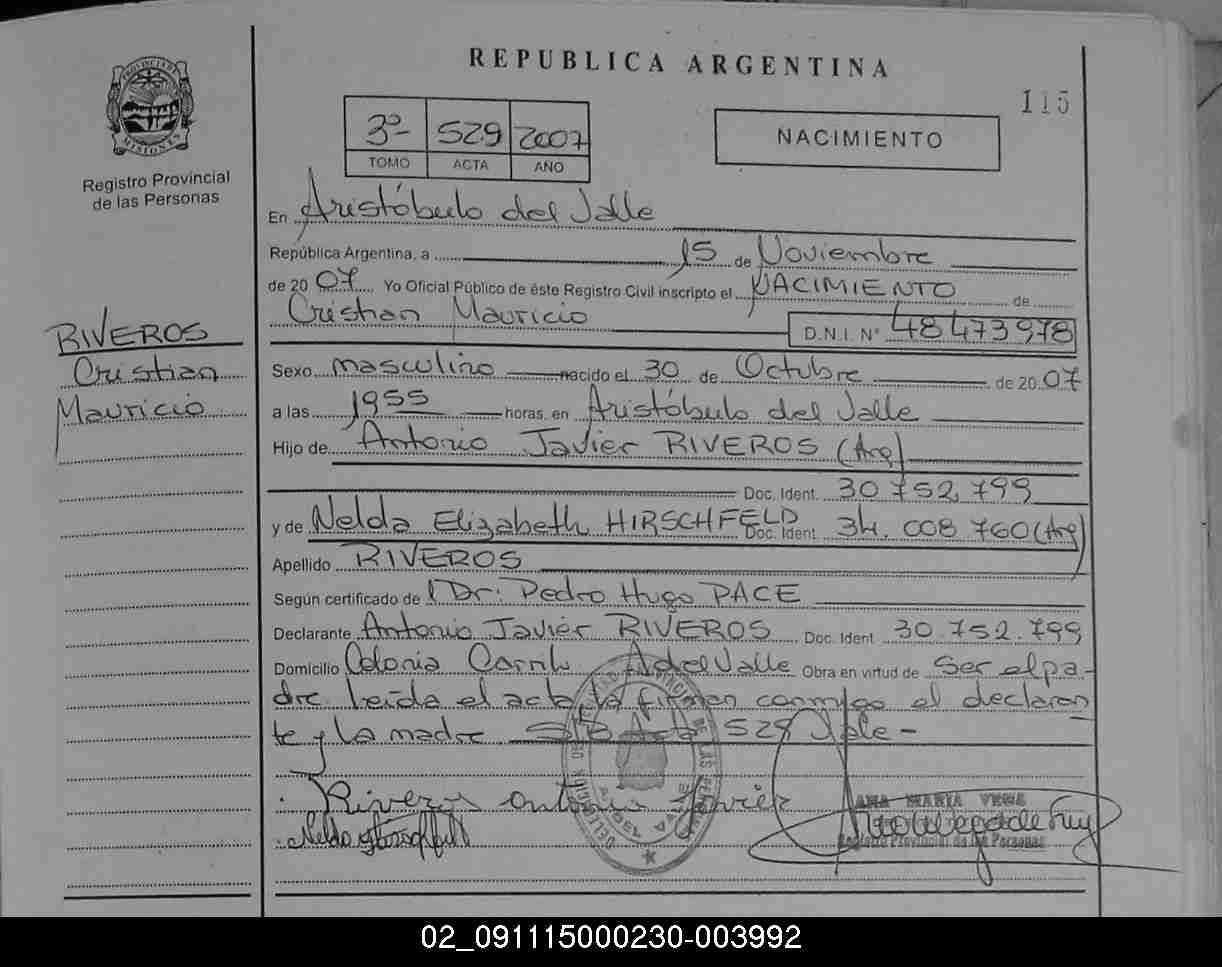 REPUBLICA ARGENTINA
115
PROVINCIA DE MISIONES
Registro Provincial
de las Personas
3º 529 2007
TOMO ACTA AÑO
NACIMIENTO
En Aristóbulo del Valle
República Argentina, a 15 de Noviembre
de 2007 Yo Oficial Público de éste Registro Civil inscripto el NACIMIENTO de
Cristian Mauricio D.N.I. Nº 48473978
RIVEROS
Cristian
Mauricio
Sexo masculino nacido el 30 de Octubre de 2007
a las 1955 horas, en Aristóbulo del Valle
Hijo de Antonio Javier RIVEROS (Arg)
Doc. Ident. 30 752.799
y de Nelda Elizabeth HIRSCHFELD Doc. Ident. 34.008.760 (Arg)
Apellido RIVEROS
Según certificado de Dr. Pedro Hugo PACE
Declarante Antonio Javier RIVEROS Doc. Ident 30.752.799
Domicilio Colonia A del Valle Obra en virtud de Ser el pa-
dre. Leída el acta la firman conmigo el declaran
te y la madre Acta 529 Vale -
Riveros Antonio Javier
Nelda
ANA MARIA VEGA
Registro Provincial de las Personas
02_091115000230-003992